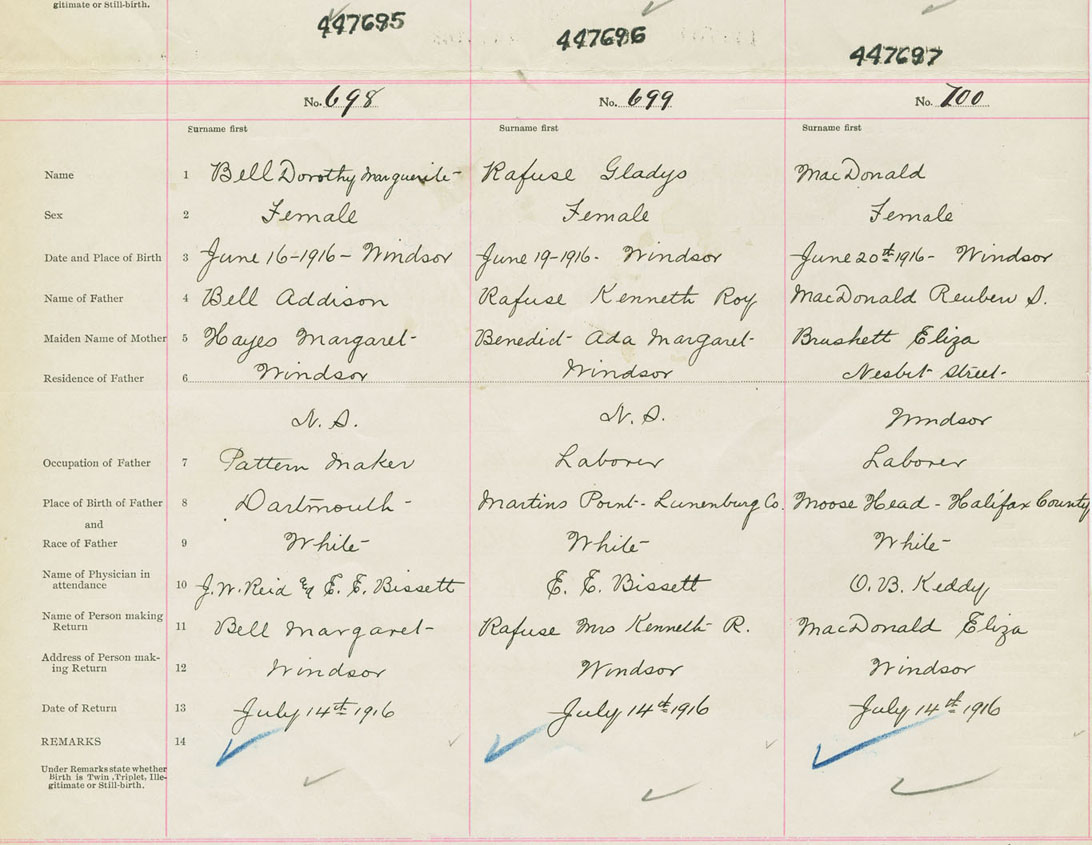 gitimate or Still-birth.
447695 447696 447697
No. 698 No. 699 No. 700
Surname first Surname first Surname first
Name 1 Bell Dorothy Marguerite Rafuse Gladys MacDonald
Sex 2 Female Female Female
Date and Place of Birth 3 June 16-1916- Windsor June 19-1916- Windsor June 20th 1916- Windsor
Name of Father 4 Bell Addison Rafuse Kenneth Roy MacDonald Reuben S.
Maiden Name of Mother 5 Hayes Margaret Benedict Ada Margaret Brushett Eliza
Residence of Father 6 Windsor Windsor Nesbit Street
N.S. N.S. Windsor
Occupation of Father 7 Pattern Maker Laborer Laborer
Place of Birth of Father 8 Dartmouth Martins Point- Lunenburg Co. Moose Head - Halifax County
and
Race of Father 9 White White White
Name of Physician in
attendance 10 J.W. Reid & E. E. Bissett E. E. Bissett O.B. Keddy
Name of Person making
Return 11 Bell Margaret Rafuse Mrs Kenneth R. MacDonald Eliza
Address of Person mak-
ing Return 12 Windsor Windsor Windsor
Date of Return 13 July 14th 1916 July 14th 1916 July 14th 1916
REMARKS 14
Under Remarks state whether
Birth is Twin, Triplet, Ille-
gitimate or Still-birth.